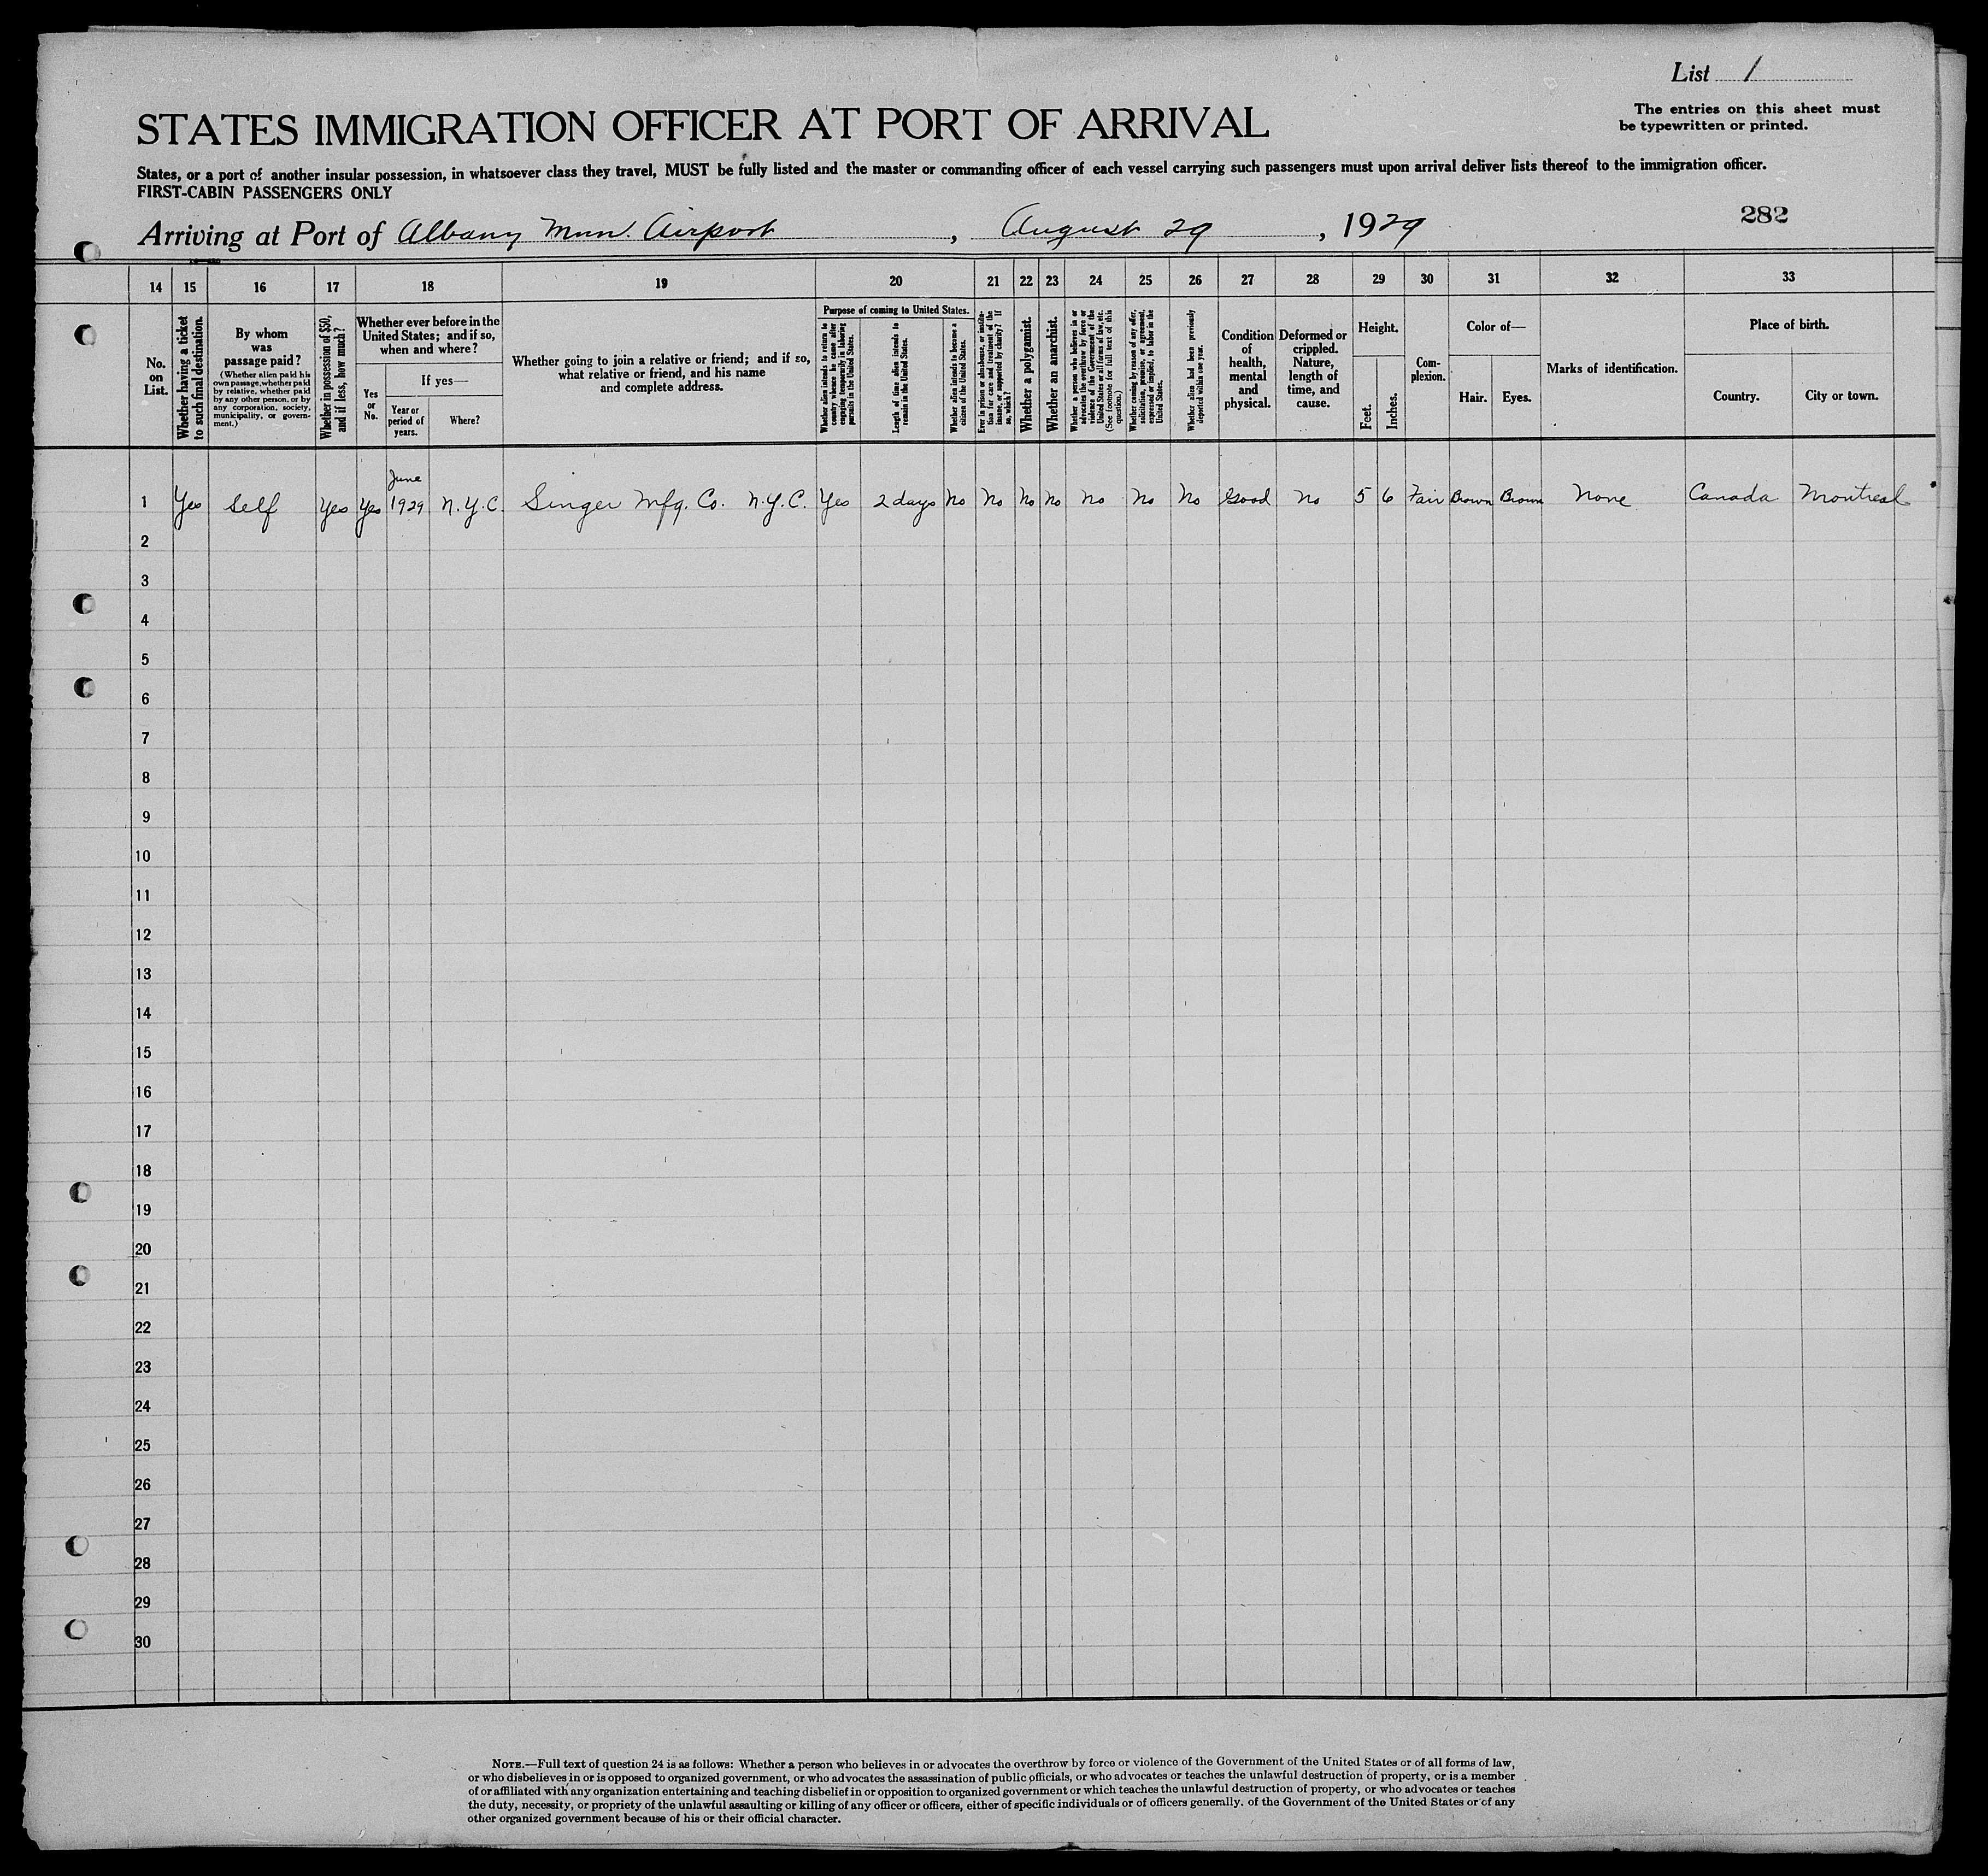 List 1
The entries on this sheet must
be typewritten or printed.
STATES IMMIGRATION OFFICER AT PORT OF ARRIVAL
States, or a port of another insular possession, in whatsoever class they travel, MUST be fully listed and the master or commanding officer of each vessel carrying such passengers must upon arrival deliver lists thereof to the immigration officer.
FIRST-CABIN PASSENGERS ONLY
282
Arriving at Port of Albany Mun. Airport, August 29, 1929
14 15 16 17 18 19 20 21 22 23 24 25 26 27 28 29 30 31 32 33
No.
on
List.
Whether having a ticket
to such final destination.
By whom
was
passage paid?
(Whether alien paid his
own passage, whether paid
by relative, whether paid
by any other person, or by
any corporation, society,
municipality, or govern-
ment.)
Whether in possession of $50,
and if less, how much?
Whether ever before in the
United States; and if so,
when and where?
Yes
or
No.
If yes—
Year or
period of
years.
Where?
Whether going to join a relative or friend; and if so,
what relative or friend, and his name
and complete address.
Purpose of coming to United States.
Whether alien intends to return to
country whence he came after
engaging temporarily in laboring
pursuits in the United States.
Length of time alien intends to
remain in the United States.
Whether alien intends to become a
citizen of the United States.
Ever in prison or almshouse, or institu-
tion for care and treatment of the
insane, or supported by charity? If
so, which?
Whether a polygamist.
Whether an anarchist.
Whether a person who believes in or
advocates the overthrow by force or
violence of the Government of the
United States or all forms of law, etc.
(See footnote for full text of this
question.)
Whether coming by reason of any offer,
solicitation, promise, or agreement,
expressed or implied, to labor in the
United States.
Whether alien had been previously
deported within one year.
Condition
of
health,
mental
and
physical.
Deformed or
crippled.
Nature,
length of
time, and
cause.
Height.
Feet.
Inches.
Com-
plexion.
Color of—
Hair.
Eyes.
Marks of identification.
Place of birth.
Country.
City or town.
June
1 Yes Self Yes Yes 1929 N.Y.C. Singer Mfg. Co. N.Y.C. Yes 2 days No No No No No No No Good No 5 6 Fair Brown Brown None Canada Montreal
2
3
4
5
6
7
8
9
10
11
12
13
14
15
16
17
18
19
20
21
22
23
24
25
26
27
28
29
30
NOTE.—Full text of question 24 is as follows: Whether a person who believes in or advocates the overthrow by force or violence of the Government of the United States or of all forms of law,
or who disbelieves in or is opposed to organized government, or who advocates the assassination of public officials, or who advocates or teaches the unlawful destruction of property, or is a member
of or affiliated with any organization entertaining and teaching disbelief in or opposition to organized government or which teaches the unlawful destruction of property, or who advocates or teaches
the duty, necessity, or propriety of the unlawful assaulting or killing of any officer or officers, either of specific individuals or of officers generally. of the Government of the United States or of any
other organized government because of his or their official character.